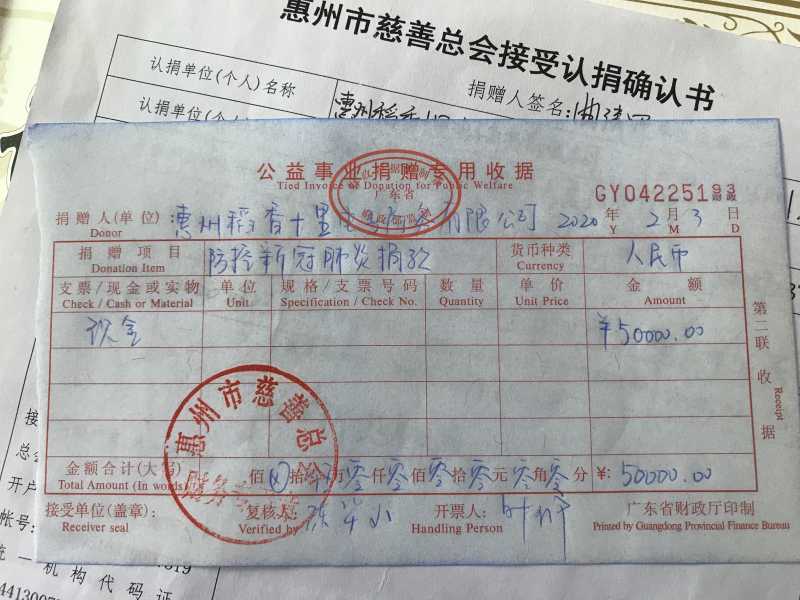 惠州市慈善总会接受认捐确认书
认捐单位(个人)名称
捐赠人签名:
认捐单位(个人)
惠州稻香
公益事业捐赠专用收据
Tied Invoice of Donation for Public Welfare
广东省
GY04225193
财政
捐赠人(单位): 惠州稻香十里 有限公司 2020 年 2 月 3 日
Donor Y M D
捐赠项目 防控新冠肺炎捐款 货币种类 人民币
Donation Item Currency
支票/现金或实物 单位 规格/支票号码 数量 单价 金额
Check / Cash or Material Unit Specification / Check No. Quantity Unit Price Amount
现金 ¥50000.00
第二联 收据
Receipt
惠州市慈善总会
金额合计(大写) 佰 拾 伍 万 零 仟 零 佰 零 拾 零 元 零 角 零 分 ¥: 50000.00
Total Amount (In words)
接受单位(盖章): 复核人: 开票人: 叶 广东省财政厅印制
Receiver seal Verified by Handling Person Printed by Guangdong Provincial Finance Bureau
开户
帐号:
统一机构代码证